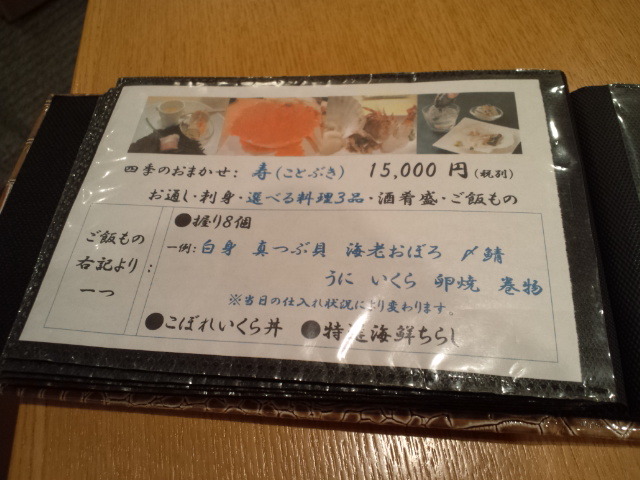 四季のおまかせ: 寿(ことぶき) 15,000 円(税別)
お通し・刺身・選べる料理3品・酒肴盛・ご飯もの
ご飯もの
右記より :
一つ
●握り8個
一例: 白身 真つぶ貝 海老おぼろ 〆鯖
うに いくら 卵焼 巻物
※当日の仕入れ状況により変わります。
●こぼれいくら丼 ●特選海鮮ちらし